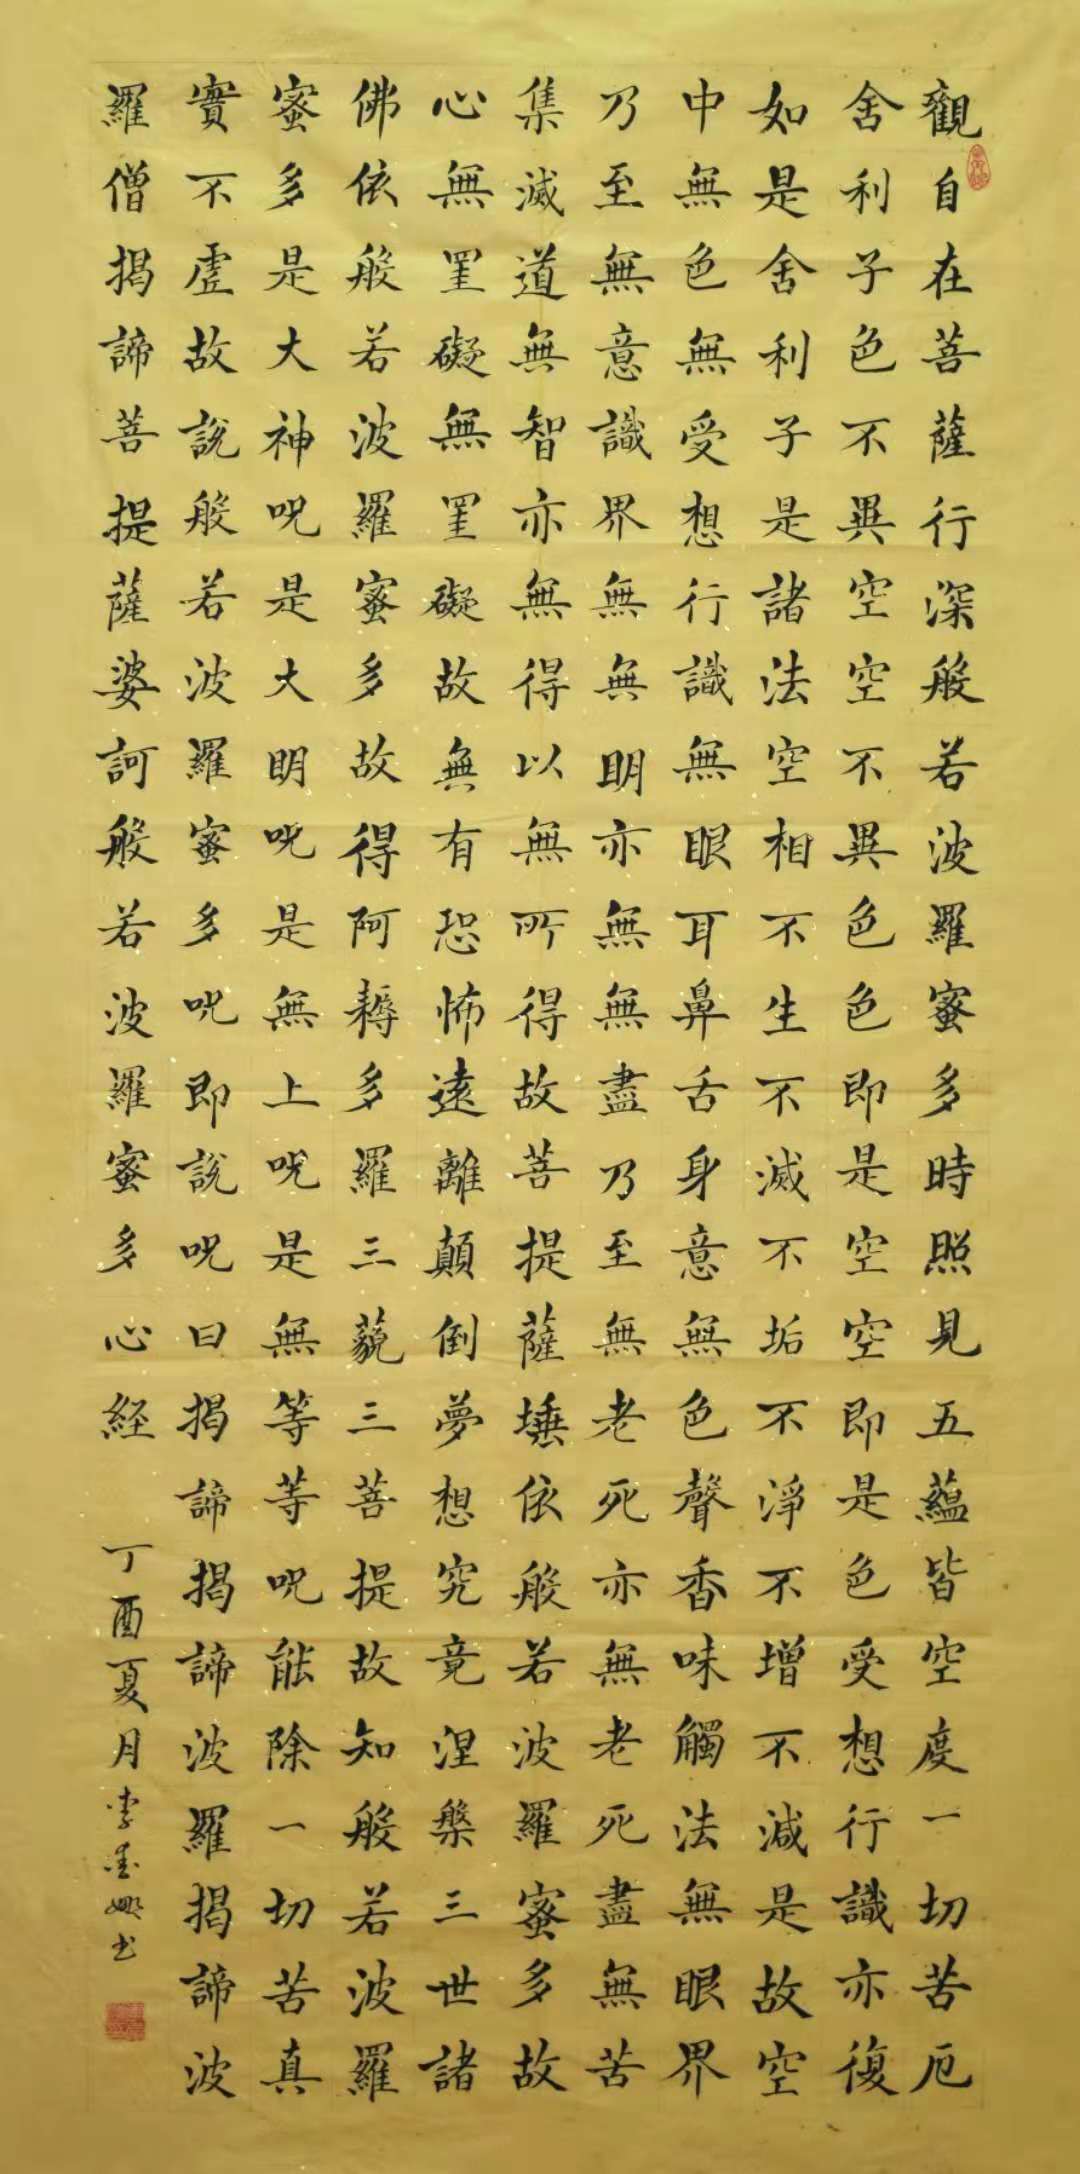 觀自在菩薩行深般若波羅蜜多時照見五蘊皆空度一切苦厄
舍利子色不異空空不異色色即是空空即是色受想行識亦復
如是舍利子是諸法空相不生不滅不垢不淨不增不減是故空
中無色無受想行識無眼耳鼻舌身意無色聲香味觸法無眼界
乃至無意識界無無明亦無無盡乃至無老死亦無老死盡無苦
集滅道無智亦無得以無所得故菩提薩埵依般若波羅蜜多故
心無罣礙無罣礙故無有恐怖遠離顛倒夢想究竟涅槃三世諸
佛依般若波羅蜜多故得阿耨多羅三藐三菩提故知般若波羅
蜜多是大神咒是大明咒是無上咒是無等等咒能除一切苦真
實不虛故說般若波羅蜜多咒即說咒曰揭諦揭諦波羅揭諦波
羅僧揭諦菩提薩婆訶般若波羅蜜多心経
丁酉夏月李書